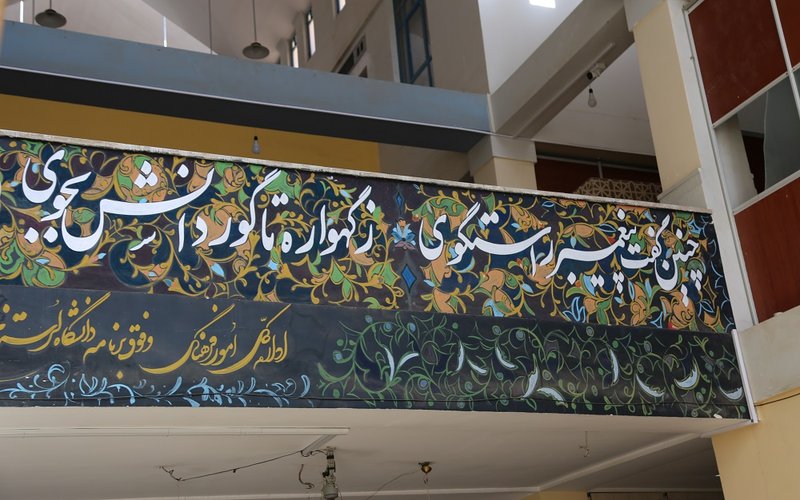 چنین گفت پیغمبر راستگوی ز گهواره تا گور دانش بجوی
اداره کل امور فرهنگی و فوق برنامه دانشگاه